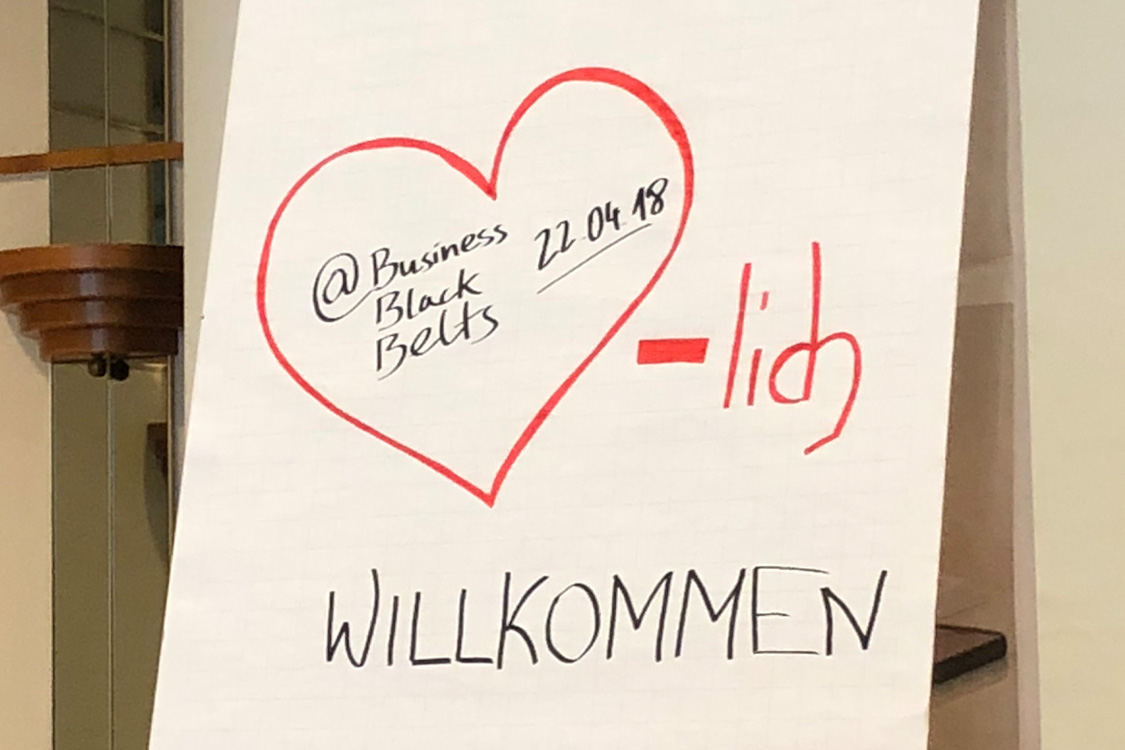 @Business 22.04.18
Black
Belts
-lich
WILLKOMMEN